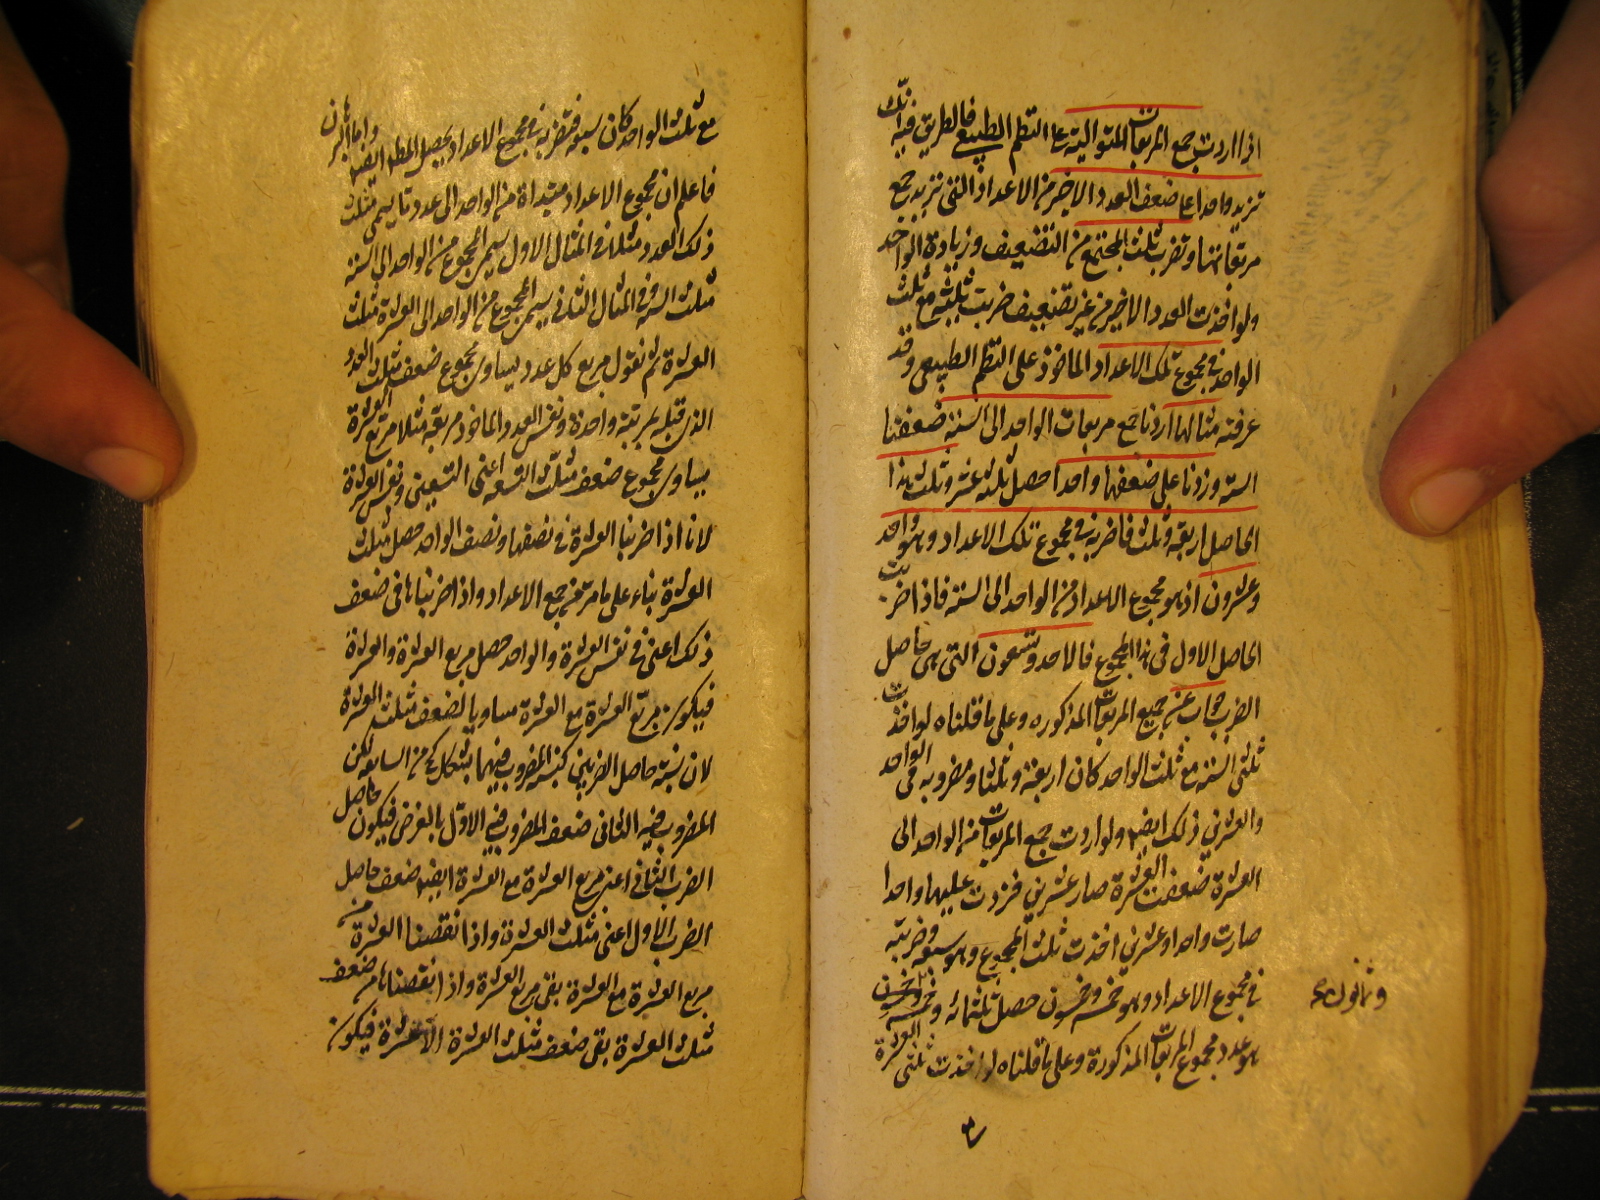 اذا اردت جمع المربعات المتوالية على النظم الطبيعي فالطريق فيه انك
تزيد واحدا على ضعف العدد الاخير من الاعداد التي تريد جمع
مربعاتها وتضرب ثلث المجتمع من التضعيف وزيادة الواحد
ولو اخذت العدد الاخير من غير تضعيف ضربت ثلثيه مع ثلث
الواحد في مجموع تلك الاعداد الماخوذ على النظم الطبيعي وقد
عرفته مثالها اردنا جمع مربعات الواحد الى الستة ضعفنا
الستة وزدنا على ضعفها واحدا حصل ثلثة عشر وثلث هذا
الحاصل اربعة وثلث فاضربه في مجموع تلك الاعداد وهو واحد
وعشرون اذ هو مجموع الاعداد من الواحد الى الستة فاذا ضربت
الحاصل الاول في هذا المجموع فالاحد وتسعون التي هي حاصل
الضرب جواب عن جميع المربعات المذكوره وعلى ما قلناه لو اخذت
ثلثي الستة مع ثلث الواحد كان اربعة وثلثا ومضروبه في الواحد
والعشرين ذلك ايضا ولو اردت جمع المربعات من الواحد الى
العشرة ضعفت العشرة صار عشرين فزدت عليها واحدا
صارت واحدا وعشرين اخذت ثلث المجموع وهو سبعة وضربته
في مجموع الاعداد وهو خمسة وخمسون حصل ثلثمائه وخمسة وخمسون
وثمانون صح
هو عدد مجموع المربعات المذكورة وعلى ما قلناه لو اخذت ثلثي العشرة
مع ثلث الواحد كان سبعة فتضربه في مجموع الاعداد يحصل المطلوب ايضا واما البرهان
فاعلم ان مجموع الاعداد مبتداة من الواحد الى عدد ما يسمى مثلث
ذلك العدد مثلا في المثال الاول يسمى المجموع من الواحد الى الستة
مثلث الستة وفي المثال الثاني يسمى المجموع من الواحد الى العشرة مثلث
العشرة ثم نقول مربع كل عدد يساوي مجموع ضعف مثلث العدد
الذي قبله بمرتبة واحدة ونفس العدد الماخوذ مربعه مثلا مربع العشرة
يساوي مجموع ضعف مثلث التسعة اعني التسعين ونفس العشرة
لانا اذا ضربنا العشرة في نصفها ونصف الواحد حصل مثلث
العشرة بناء على ما مر من جمع الاعداد واذا ضربناها في ضعف
ذلك اعني في نفس العشرة والواحد حصل مربع العشرة والعشرة
فيكون مربع العشرة مع العشرة مساويا لضعف مثلث العشرة
لان نسبة حاصل الضربين كنسبة المضروب فيهما بشكل من السابعة لكن
المضروب فيه الثاني ضعف المضروب فيه الاول بالفرض فيكون حاصل
الضرب الثاني اعني مربع العشرة مع العشرة ايضا ضعف حاصل
الضرب الاول اعني مثلث العشرة واذا نقصنا العشرة من
مربع العشرة مع العشرة بقي مربع العشرة واذا نقصناها من ضعف
مثلث العشرة بقي ضعف مثلث العشرة الا عشرة فيكون